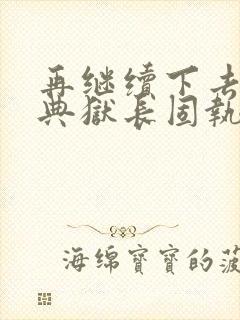 再继续下去
典獄长固執
海绵寶寶的菠